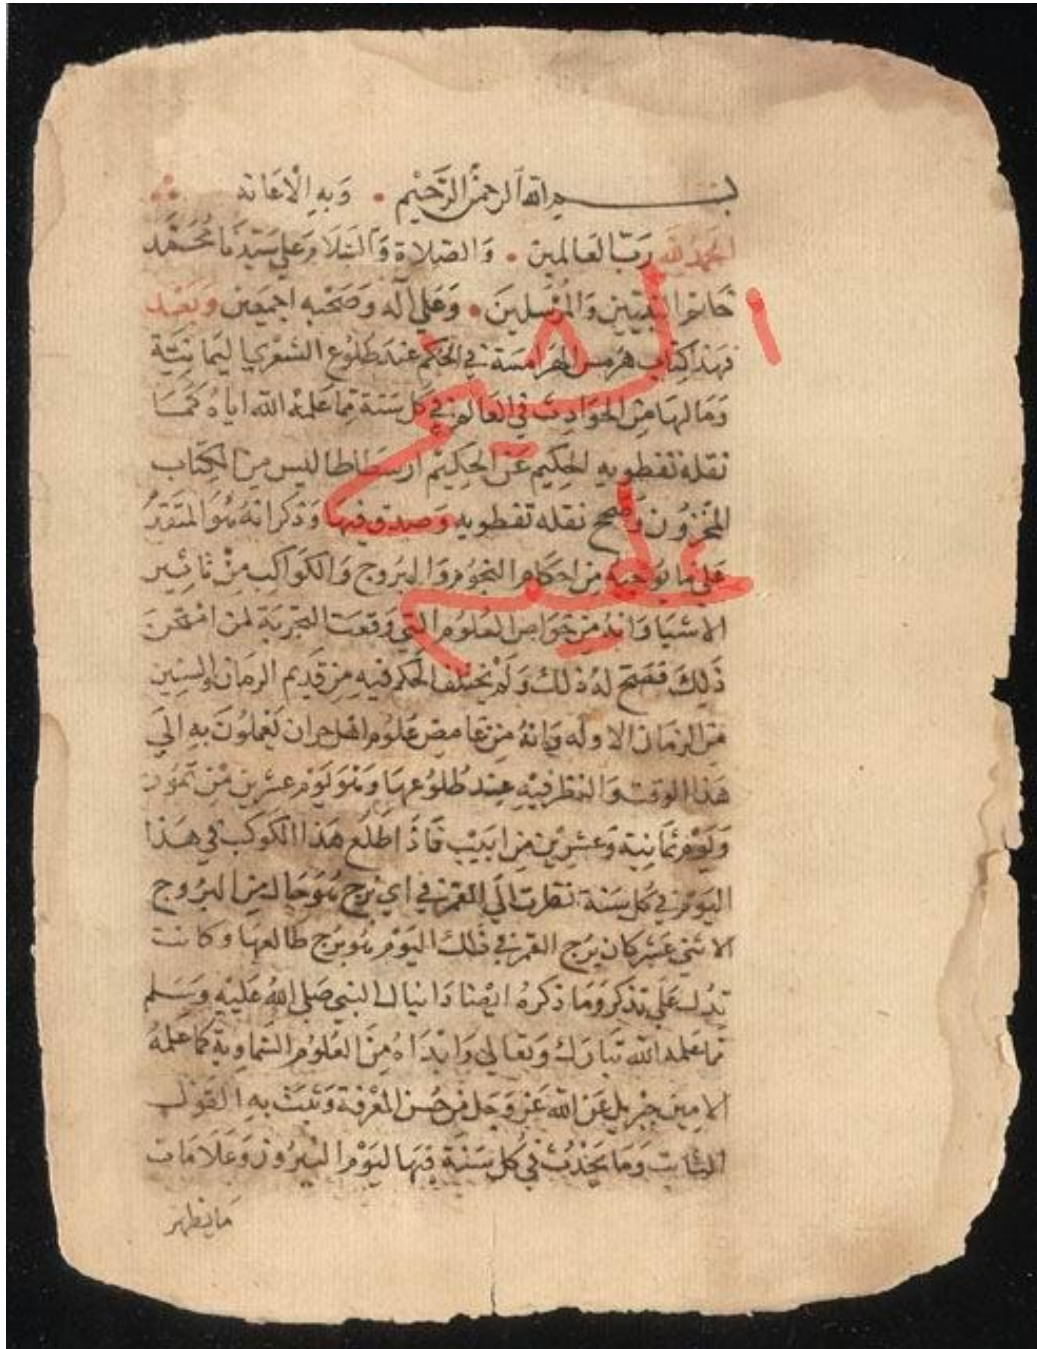 بسم الله الرحمن الرحيم • وبه الاعانه
الحمد لله رب العالمين • والصلاة والسلام وعلى سيدنا محمد
خاتم النبيين والمرسلين • وعلى آله وصحبه اجمعين وبعد
فهذا كتاب هرمس الهرامسة في الحكم عند طلوع الشعري اليمانية
وما لها من الحوادث في العالم في كل سنة مما علمه الله اياه كما
نقله نفطويه الحكيم عن الحكيم ارسطاطاليس من الكتاب
المخزون وصح نقله نفطويه وصدق فيها وذكر انه هو المتقدم
على ما يوجبه من احكام النجوم والبروج والكواكب من تاثير
الاشيا وانه من خواص العلوم التي وقعت التجربة لمن امتحن
ذلك فصح له ذلك ولم يختلف الحكم فيه من قديم الزمان والسنين
من الزمان الاوله وانه من غامض علوم اهل حران يعملون به الي
هذا الوقت والنظر فيه عند طلوعها وهو يوم عشرين من تموز
ويوم ثمانية وعشرين من ابيب فاذا طلع هذا الكوكب في هذا
اليوم في كل سنة نظرت الي القمر في اي برج هو حال من البروج
الاثني عشر كان برج القمر في ذلك اليوم هو برج طالعها وكانت
تدل على وما ذكره ايضا دانيال النبي صلى الله عليه وسلم
مما علمه الله تبارك وتعالى وابداه من العلوم السماوية كما علمه
الامين جبريل عن الله عز وجل من حسن المعرفة وثبت به القول
الثابت وما يحدث في كل سنة فيها ليوم النيروز وعلامات
ما يظهر
الشيخ
عليم